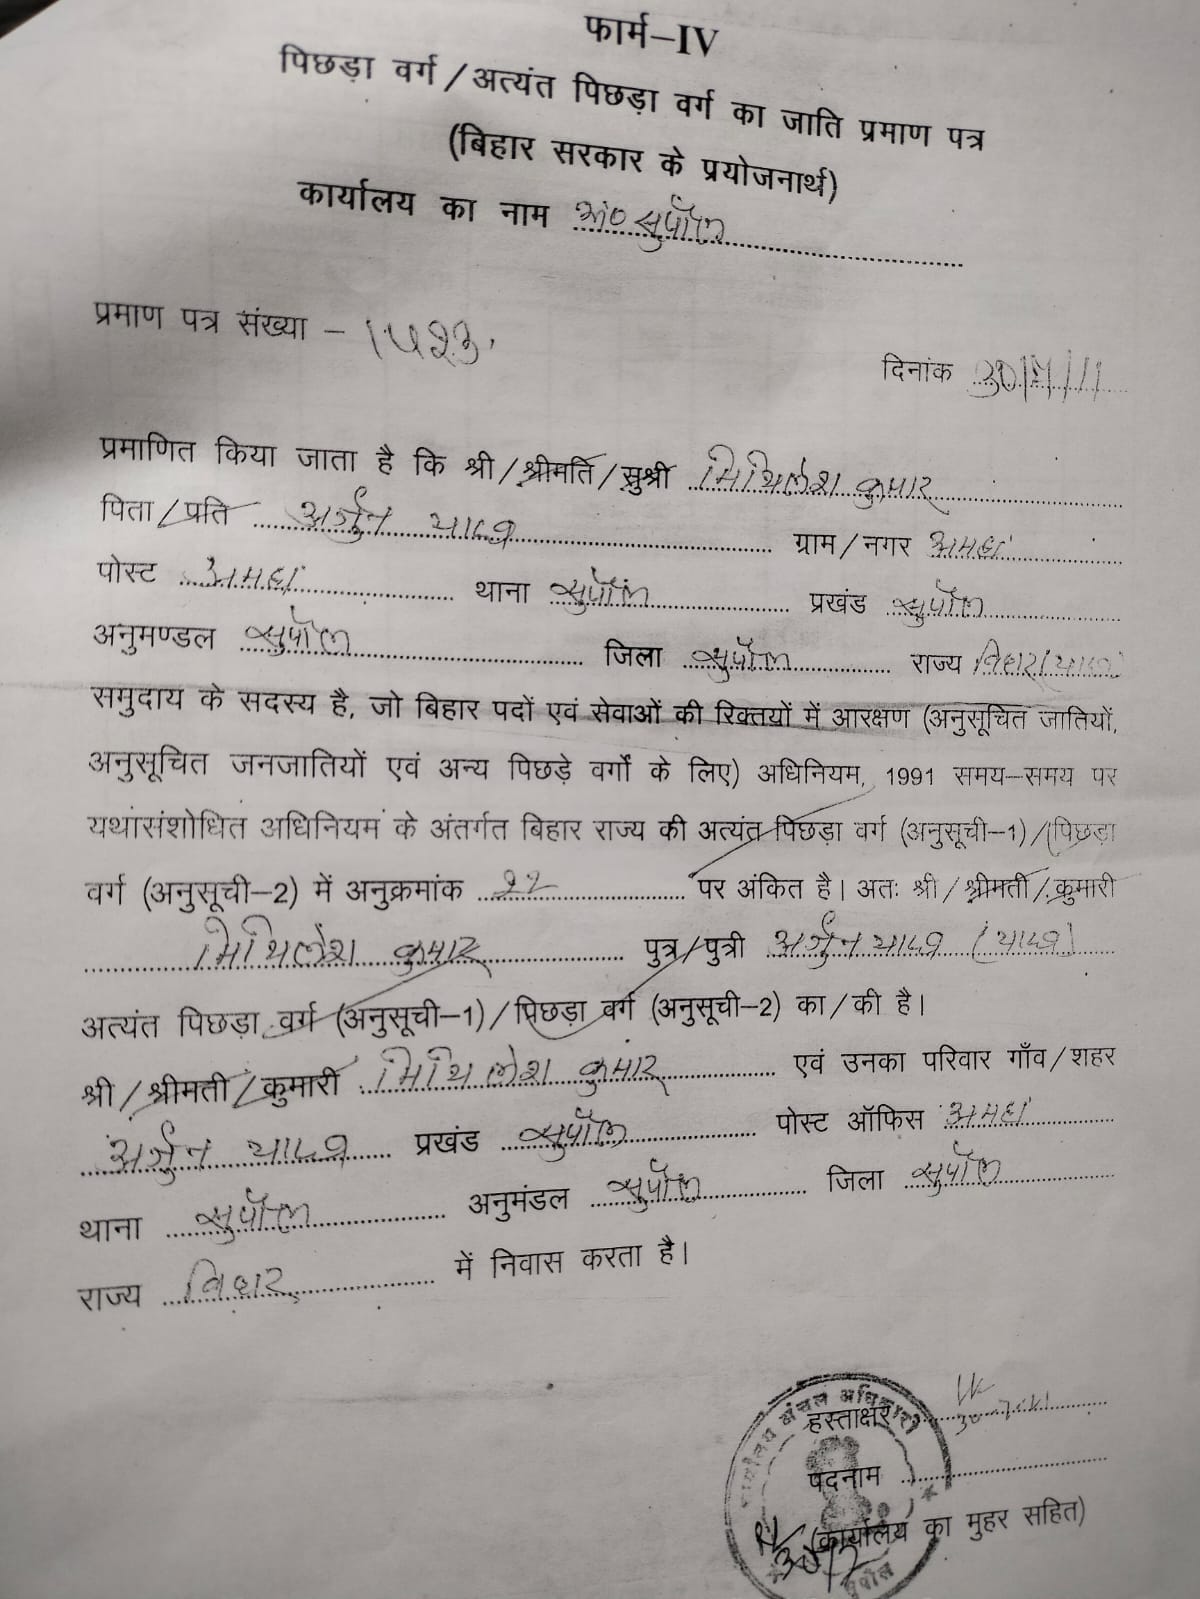 फार्म–IV
पिछड़ा वर्ग / अत्यंत पिछड़ा वर्ग का जाति प्रमाण पत्र
(बिहार सरकार के प्रयोजनार्थ)
कार्यालय का नाम अं० सुपौल
प्रमाण पत्र संख्या – 1523
दिनांक 30/7/11
प्रमाणित किया जाता है कि श्री / श्रीमति / सुश्री मिथिलेश कुमार
पिता / प्रति अर्जुन यादव ग्राम / नगर अमहा
पोस्ट अमहा थाना सुपौल प्रखंड सुपौल
अनुमण्डल सुपौल जिला सुपौल राज्य बिहार (यादव)
समुदाय के सदस्य है, जो बिहार पदों एवं सेवाओं की रिक्तयों में आरक्षण (अनुसूचित जातियों,
अनुसूचित जनजातियों एवं अन्य पिछड़े वर्गों के लिए) अधिनियम, 1991 समय–समय पर
यथासंशोधित अधिनियम के अंतर्गत बिहार राज्य की अत्यंत पिछड़ा वर्ग (अनुसूची–1) / (पिछड़ा
वर्ग (अनुसूची–2) में अनुक्रमांक 22 पर अंकित है। अतः श्री / श्रीमती / कुमारी
मिथिलेश कुमार पुत्र / पुत्री अर्जुन यादव (यादव)
अत्यंत पिछड़ा वर्ग (अनुसूची–1) / पिछड़ा वर्ग (अनुसूची–2) का / की है।
श्री / श्रीमती / कुमारी मिथिलेश कुमार एवं उनका परिवार गाँव / शहर
अर्जुन यादव प्रखंड सुपौल पोस्ट ऑफिस अमहा
थाना सुपौल अनुमंडल सुपौल जिला सुपौल
राज्य बिहार में निवास करता है।
हस्ताक्षर
पदनाम
(कार्यालय का मुहर सहित)
अंचल अधिकारी
सुपौल